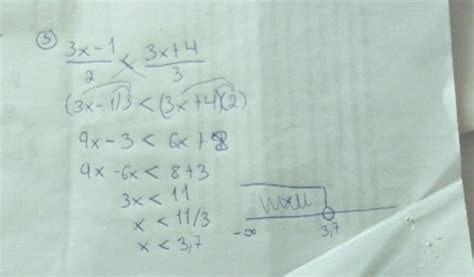 3) 3x-1/2 < 3x+4/3
(3x-1)3 < (3x+4)(2)
9x-3 < 6x+8
9x-6x < 8+3
3x < 11
x < 11/3
x < 3,7
-∞ 3,7